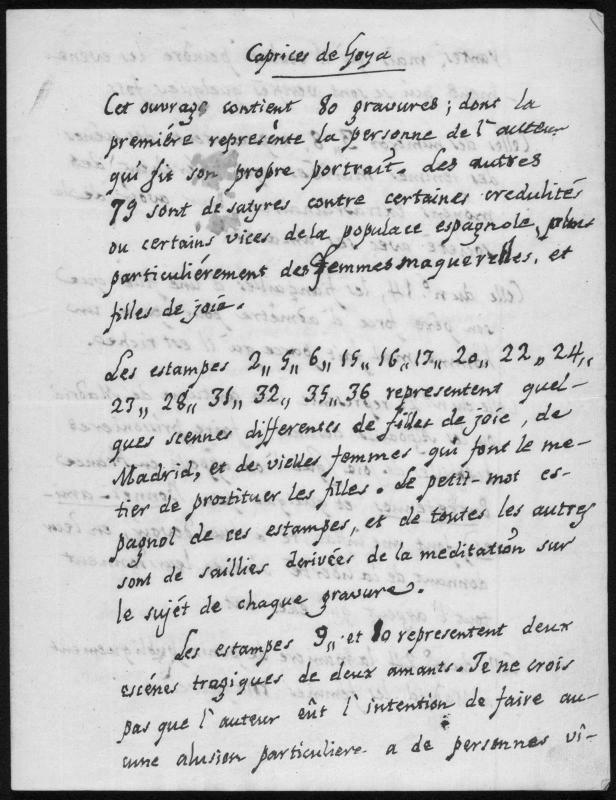 Caprices de Goya
Cet ouvrage contient 80 gravures; dont la
premiére represénte la personne de l'auteur
qui fit son propre portrait. des autres
79 sont de satyres contre certaines credulités
ou certains vices de la populace espagnole, plus
particuliérement des femmes maquerelles, et
filles de joie.
Les estampes 2,, 5,, 6,, 15,, 16,, 17,, 20,, 22,, 24,,
27,, 28,, 31,, 32,, 35,, 36 representent quel-
ques scennes differentes de filles de joie, de
Madrid, et de vielles femmes qui font le me-
tier de proztituer les filles. Le petit-mot es-
pagnol de ces estampes, et de toutes les autres
sont de saillies derivées de la meditation sur
le sujét de chaque gravure.
Les estampes 9,, et 10 representent deux
escénes tragiques de deux amants. Je ne crois
pas que l'auteur eût l'intention de faire au-
cune alusion particuliere a de personnes vi-